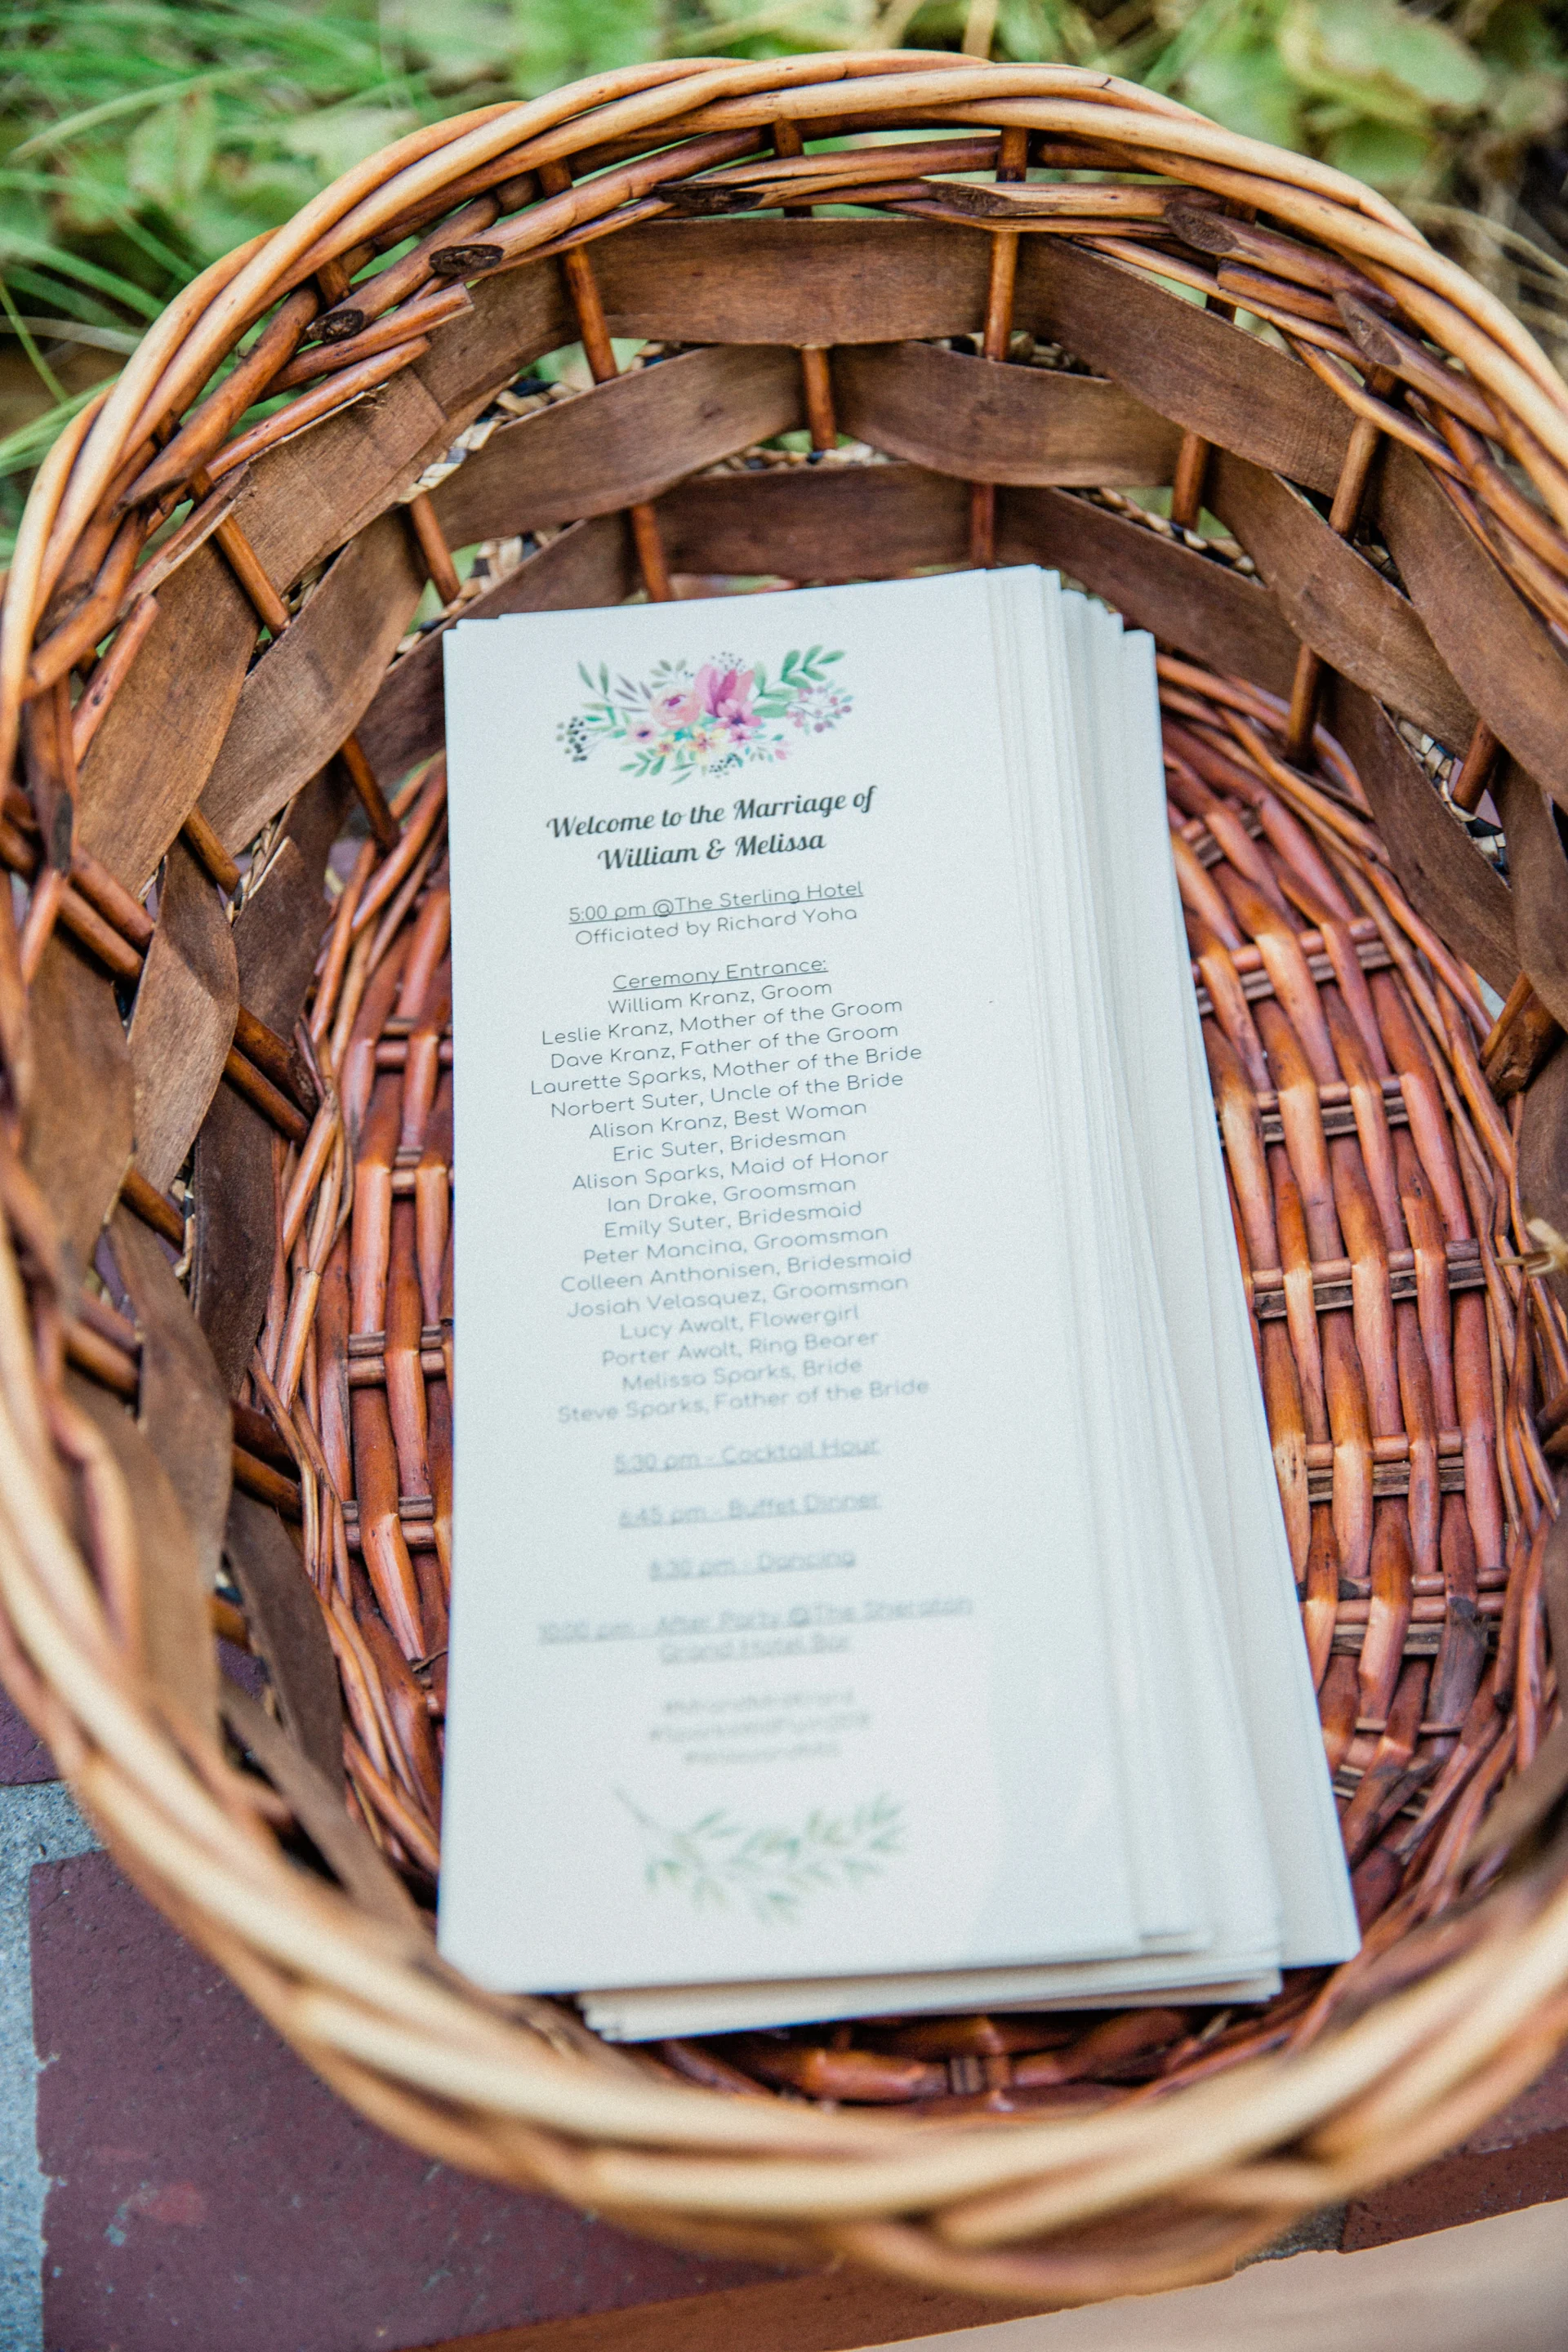 Welcome to the Marriage of
William & Melissa
5:00 pm @The Sterling Hotel
Officiated by Richard Yoha
Ceremony Entrance:
William Kranz, Groom
Leslie Kranz, Mother of the Groom
Dave Kranz, Father of the Groom
Laurette Sparks, Mother of the Bride
Norbert Suter, Uncle of the Bride
Alison Kranz, Best Woman
Eric Suter, Bridesman
Alison Sparks, Maid of Honor
Ian Drake, Groomsman
Emily Suter, Bridesmaid
Peter Mancina, Groomsman
Colleen Anthonisen, Bridesmaid
Josiah Velasquez, Groomsman
Lucy Awalt, Flowergirl
Porter Awalt, Ring Bearer
Melissa Sparks, Bride
Steve Sparks, Father of the Bride
5:30 pm - Cocktail Hour
6:45 pm - Buffet Dinner
8:30 pm - Dancing
10:00 pm - After Party @The Sheraton
Grand Hotel Bar